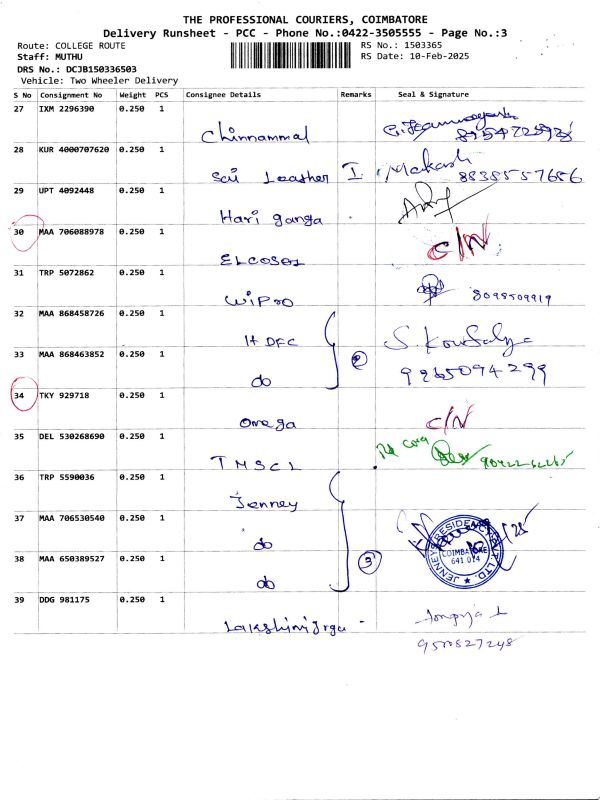 THE PROFESSIONAL COURIERS, COIMBATORE
Delivery Runsheet - PCC - Phone No.:0422-3505555 - Page No.:3
Route: COLLEGE ROUTE RS No.: 1503365
Staff: MUTHU RS Date: 10-Feb-2025
DRS No.: DCJB150336503
Vehicle: Two Wheeler Delivery
S No Consignment No Weight PCS Consignee Details Remarks Seal & Signature
27 IXM 2296390 0.250 1
Chinnammal
28 KUR 4000707620 0.250 1 Mekash
Sai Leather I. 8838557686
29 UPT 4092448 0.250 1
Hari ganga
30 MAA 706088978 0.250 1 C/N
ELCOSOS
31 TRP 5072862 0.250 1
WiPro 8098509919
32 MAA 868458726 0.250 1
HDFC S. Kousalya
33 MAA 868463852 0.250 1 2
do 9965094299
34 TKY 929718 0.250 1
Omega C/N
35 DEL 530268690 0.250 1
TMSCL
36 TRP 5590036 0.250 1
Jenney
37 MAA 706530540 0.250 1
do
38 MAA 650389527 0.250 1 3
do
JENNEYS RESIDENCY PVT. LTD.
COIMBATORE
641 014
39 DDG 981175 0.250 1
9500827248